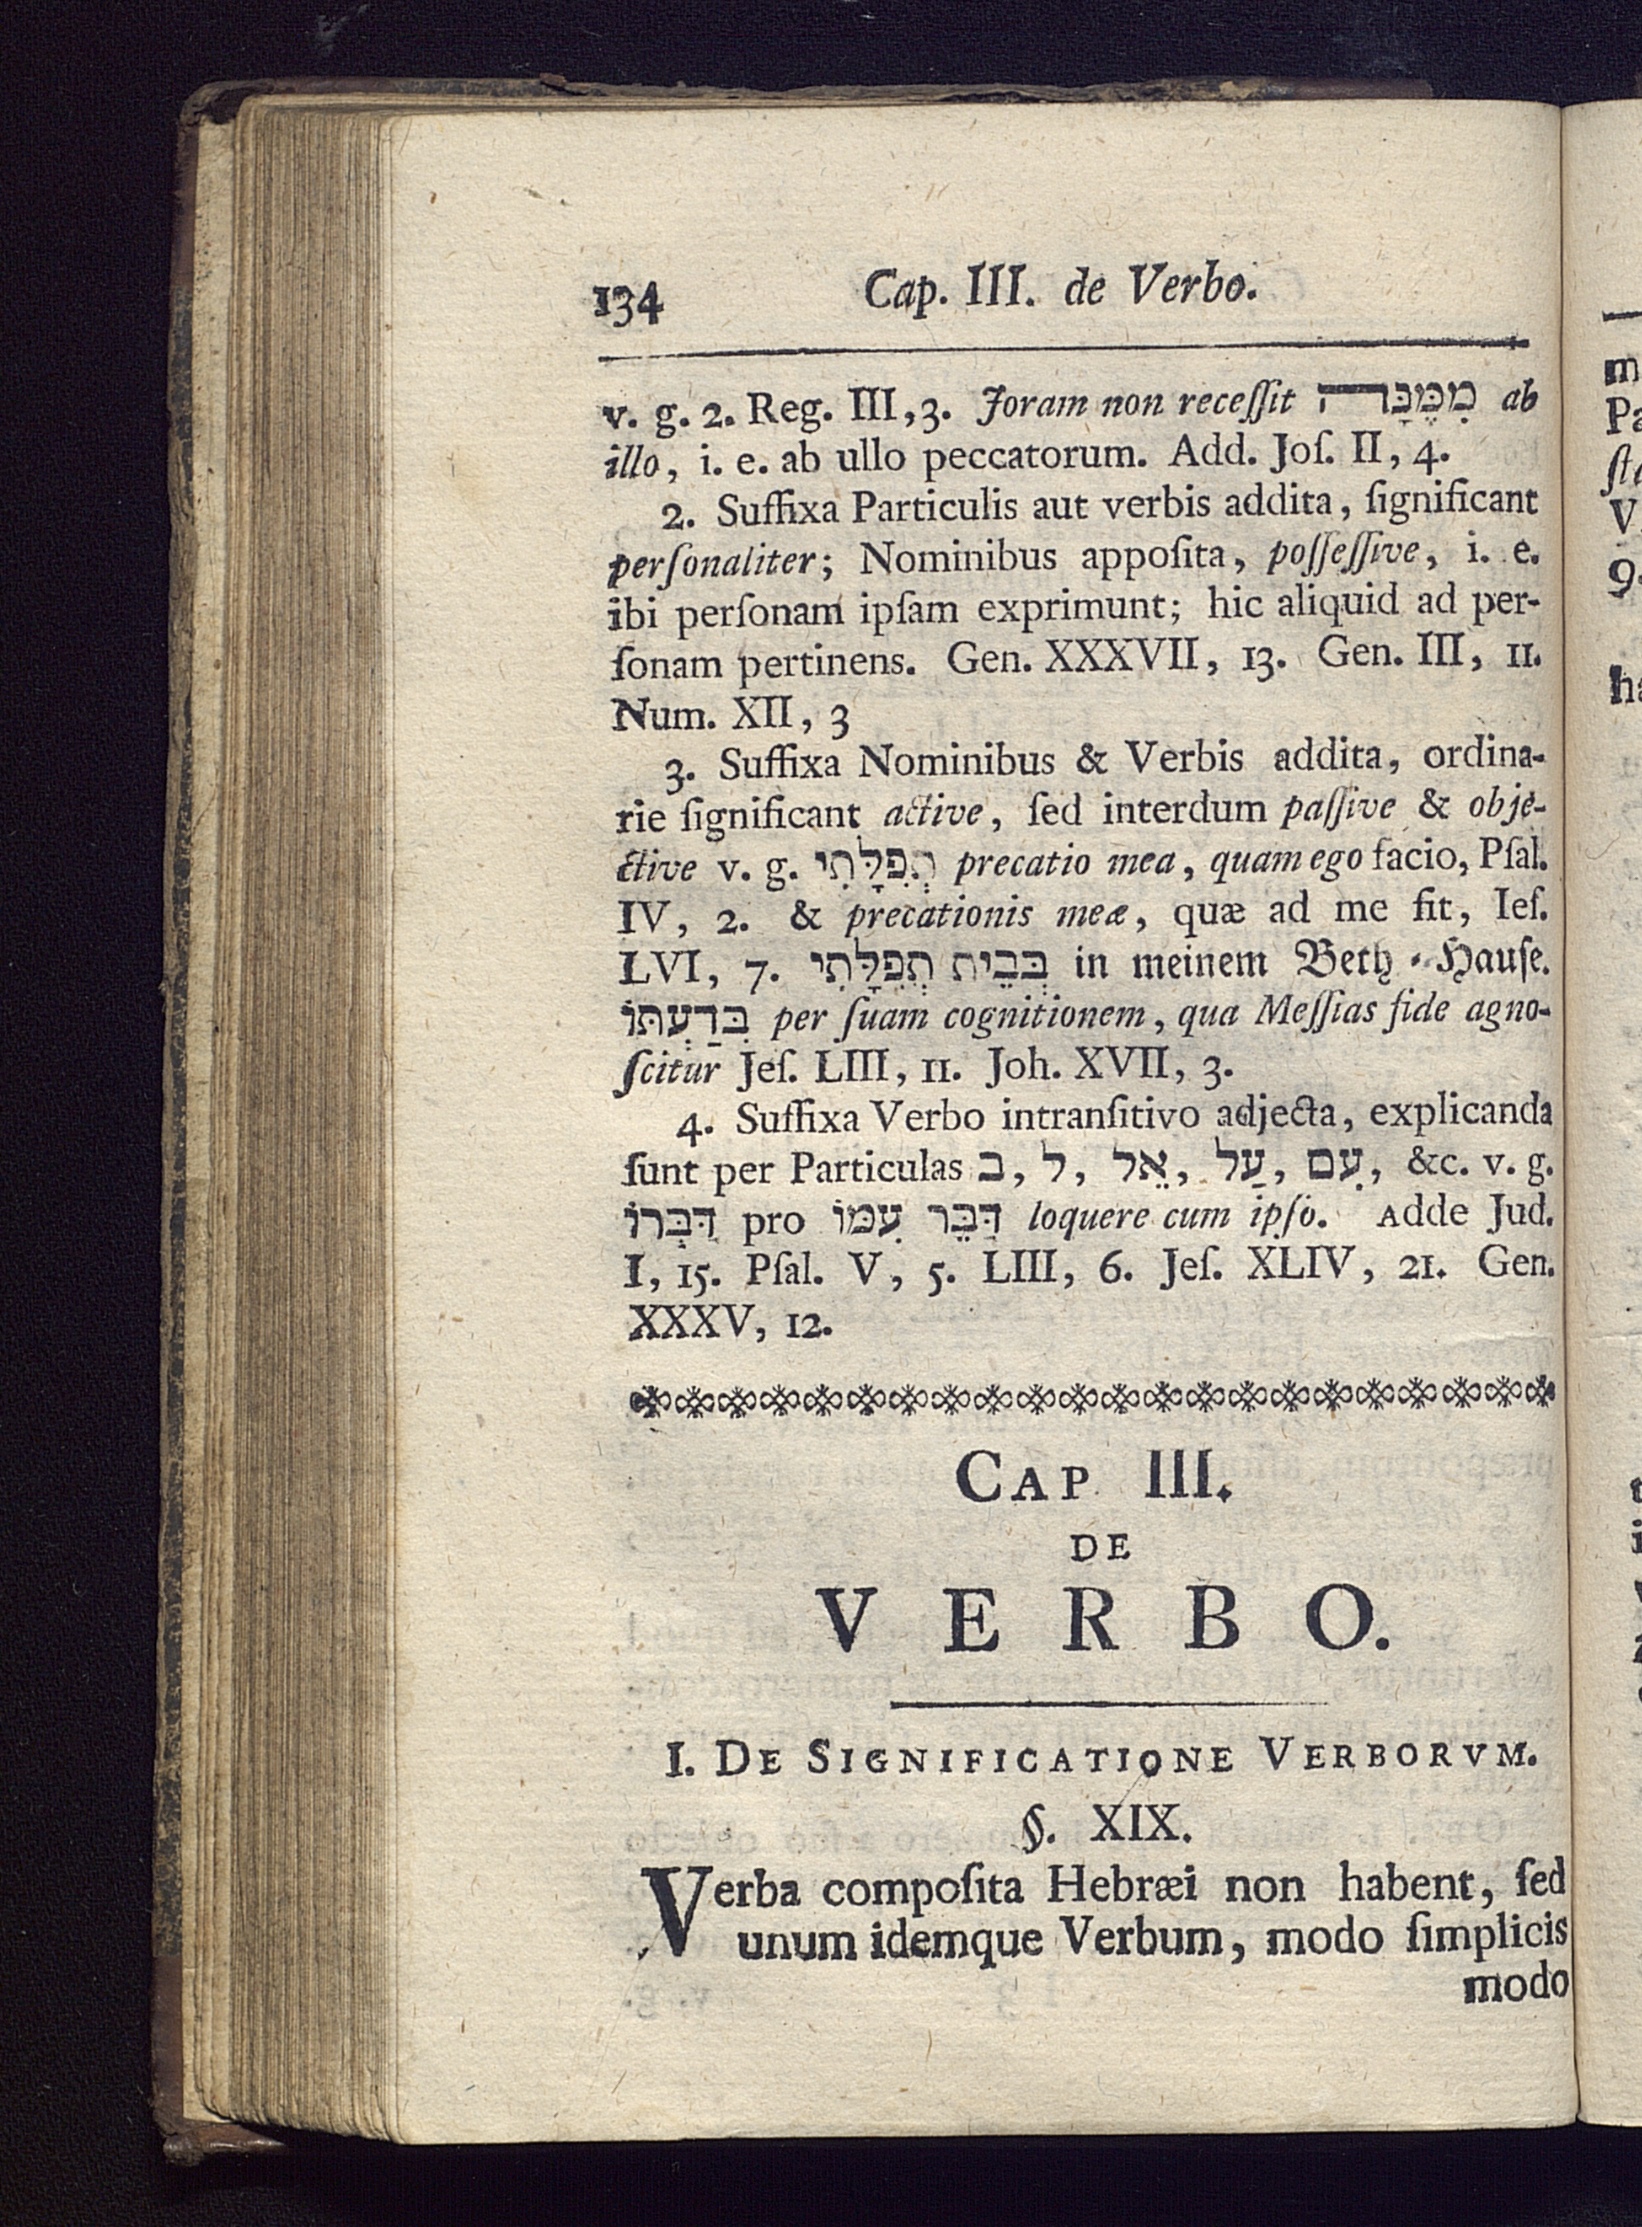 134 Cap. III. de Verbo.
v. g. 2. Reg. III, 3. Joram non receſſit מִמֶּנָּה ab
illo, i. e. ab ullo peccatorum. Add. Joſ. II, 4.
2. Suffixa Particulis aut verbis addita, ſignificant
perſonaliter; Nominibus appoſita, poſſeſſive, i. e.
ibi perſonam ipſam exprimunt; hic aliquid ad per-
ſonam pertinens. Gen. XXXVII, 13. Gen. III, 11.
Num. XII, 3
3. Suffixa Nominibus & Verbis addita, ordina-
rie ſignificant active, ſed interdum paſſive & obje-
ctive v. g. תְּפִלָּתִי precatio mea, quam ego facio, Pſal.
IV, 2. & precationis meæ, quæ ad me fit, Ieſ.
LVI, 7. בְּבֵית תְּפִלָּתִי in meinem Beth-Hauſe.
בְּדַעְתּוֹ per ſuam cognitionem, qua Meſſias fide agno-
ſcitur Jeſ. LIII, 11. Joh. XVII, 3.
4. Suffixa Verbo intranſitivo adjecta, explicanda
ſunt per Particulas ב, ל, אֵל, עַל, עִם, &c. v. g.
דַּבְּרוֹ pro דַּבֵּר עִמּוֹ loquere cum ipſo. Adde Jud.
I, 15. Pſal. V, 5. LIII, 6. Jeſ. XLIV, 21. Gen.
XXXV, 12.
CAP III.
DE
VERBO.
I. DE SIGNIFICATIONE VERBORVM.
§. XIX.
Verba compoſita Hebræi non habent, ſed
unum idemque Verbum, modo ſimplicis
modo